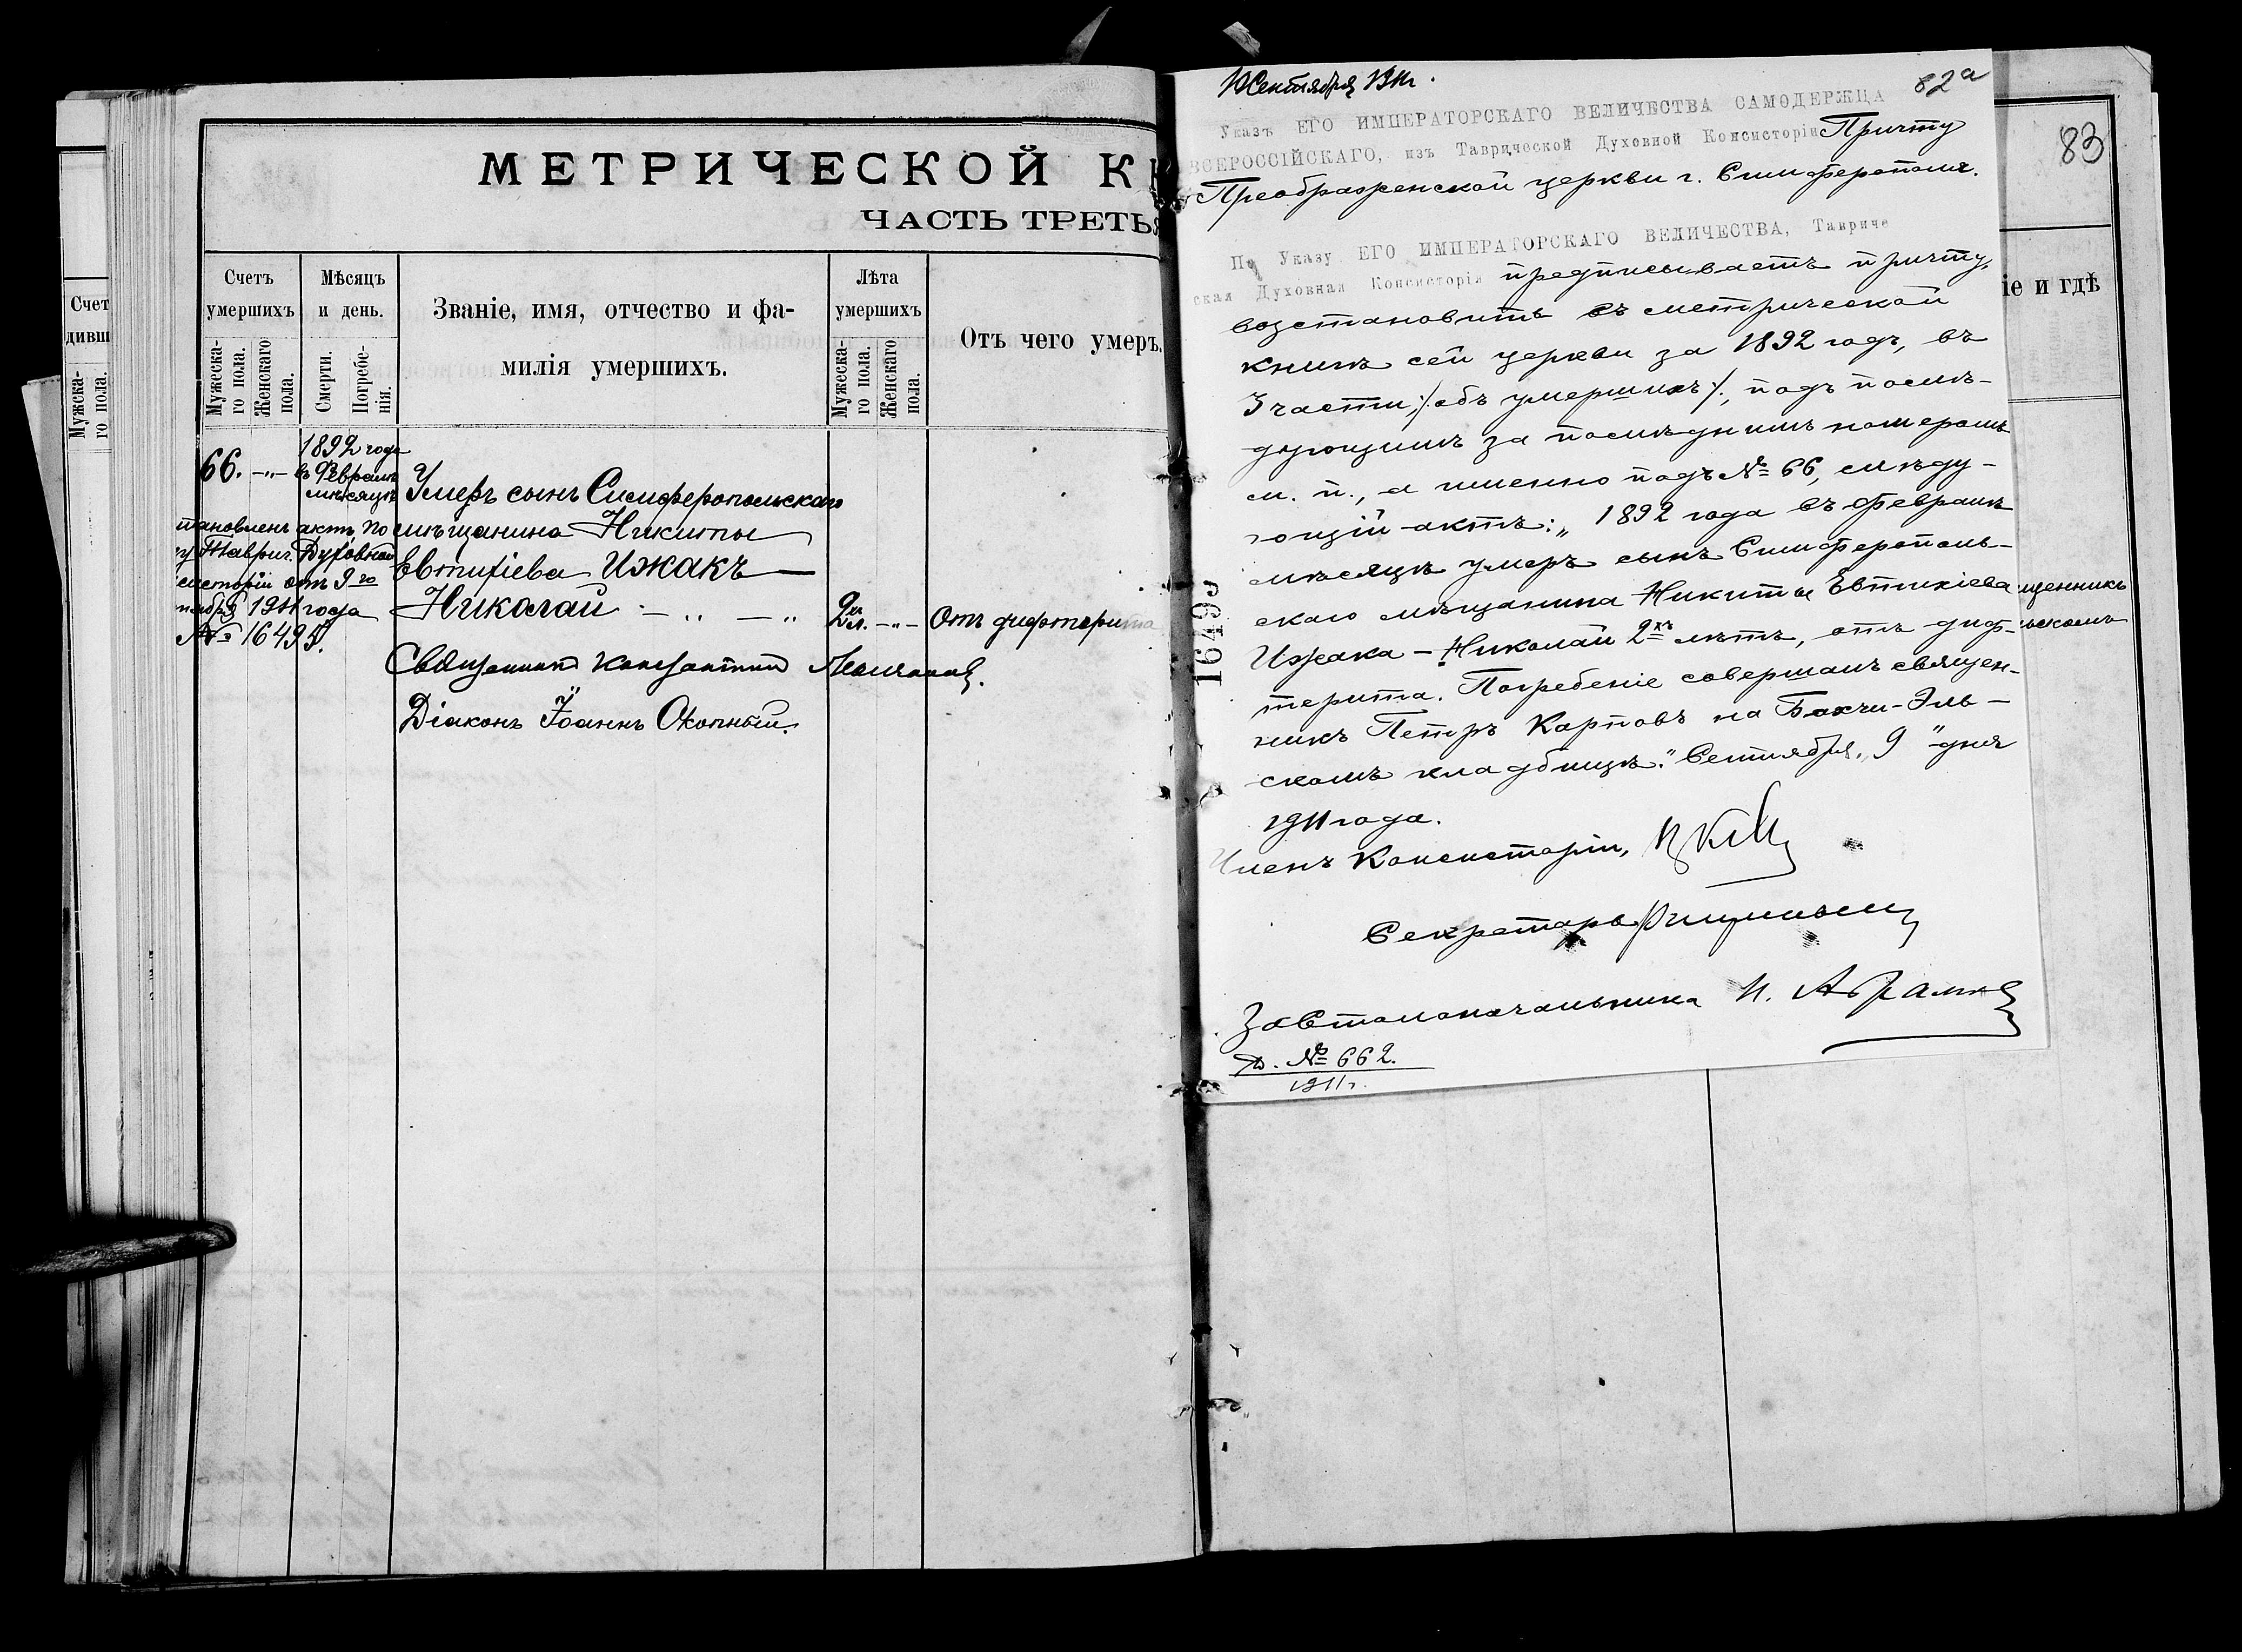 МЕТРИЧЕСКОЙ КН
ЧАСТЬ ТРЕТЬЯ
Счет
дивш
Мужска-
го пола.
Счетъ
умершихъ
Мужеска-
го пола.
Женскаго
пола.
Мѣсяцъ
и день.
Смерти.
Погребе-
нія.
Званіе, имя, отчество и фа-
милія умершихъ.
Лѣта
умершихъ
Мужеска-
го пола.
Женскаго
пола.
Отъ чего умеръ.
66. -"-
1892 года
въ Февралѣ
мѣсяцѣ
Умеръ сынъ Симферопольскаго
мѣщанина Никиты
Евтихіева Ижакъ —
Николай — " — "
2хъ л. -"-
Отъ дифтерита
тановленъ актъ, по
у Таврич. Духовной
систоріи отъ 9го
тября 1911 года
№ 16495.
Священникъ Константинъ Молчановъ.
Діаконъ Іоаннъ Окопный.
10 Сентября 1911 г.
82а
Указъ ЕГО ИМПЕРАТОРСКАГО ВЕЛИЧЕСТВА САМОДЕРЖЦА
ВСЕРОССІЙСКАГО, изъ Таврической Духовной Консисторіи Причту
Преображенской церкви г. Симферополя.
По Указу ЕГО ИМПЕРАТОРСКАГО ВЕЛИЧЕСТВА, Тавриче
ская Духовная Консисторія предписываетъ причту,
возстановить въ метрической
книгѣ сей церкви за 1892 годъ, въ
3 части /:объ умершихъ:/, подъ послѣ-
дующимъ за послѣднимъ номеромъ
м. п., а именно подъ № 66, слѣду-
ющій актъ: „1892 года въ Февралѣ
мѣсяцѣ умеръ сынъ Симферополь-
скаго мѣщанина Никиты Евтихіева
Ижака — Николай 2хъ лѣтъ, отъ диф-
терита. Погребеніе совершалъ священ-
никъ Петръ Карповъ на Бахчи-Эль-
скомъ кладбищѣ." Сентября „9" дня
1911 года.
Членъ Консисторіи,
Секретарь
За Столоначальника И. Абрамов
Д. № 662.
1911 г.
16495
83
іе и гдѣ
щенникъ
ьскомъ